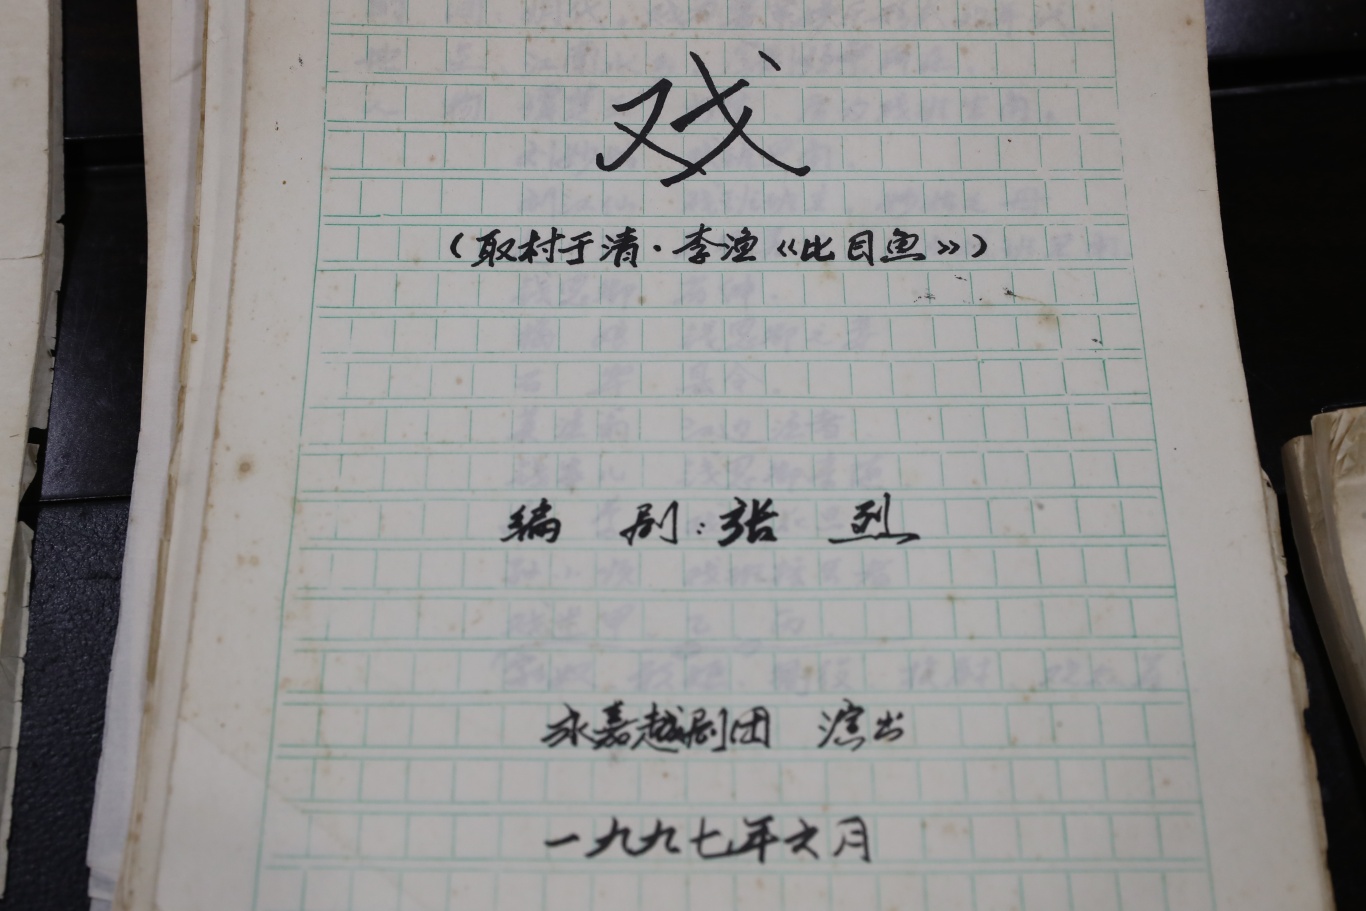 戏
（取材于清·李渔《比目鱼》）
编 剧：张 烈
永嘉越剧团 演出
一九九七年六月